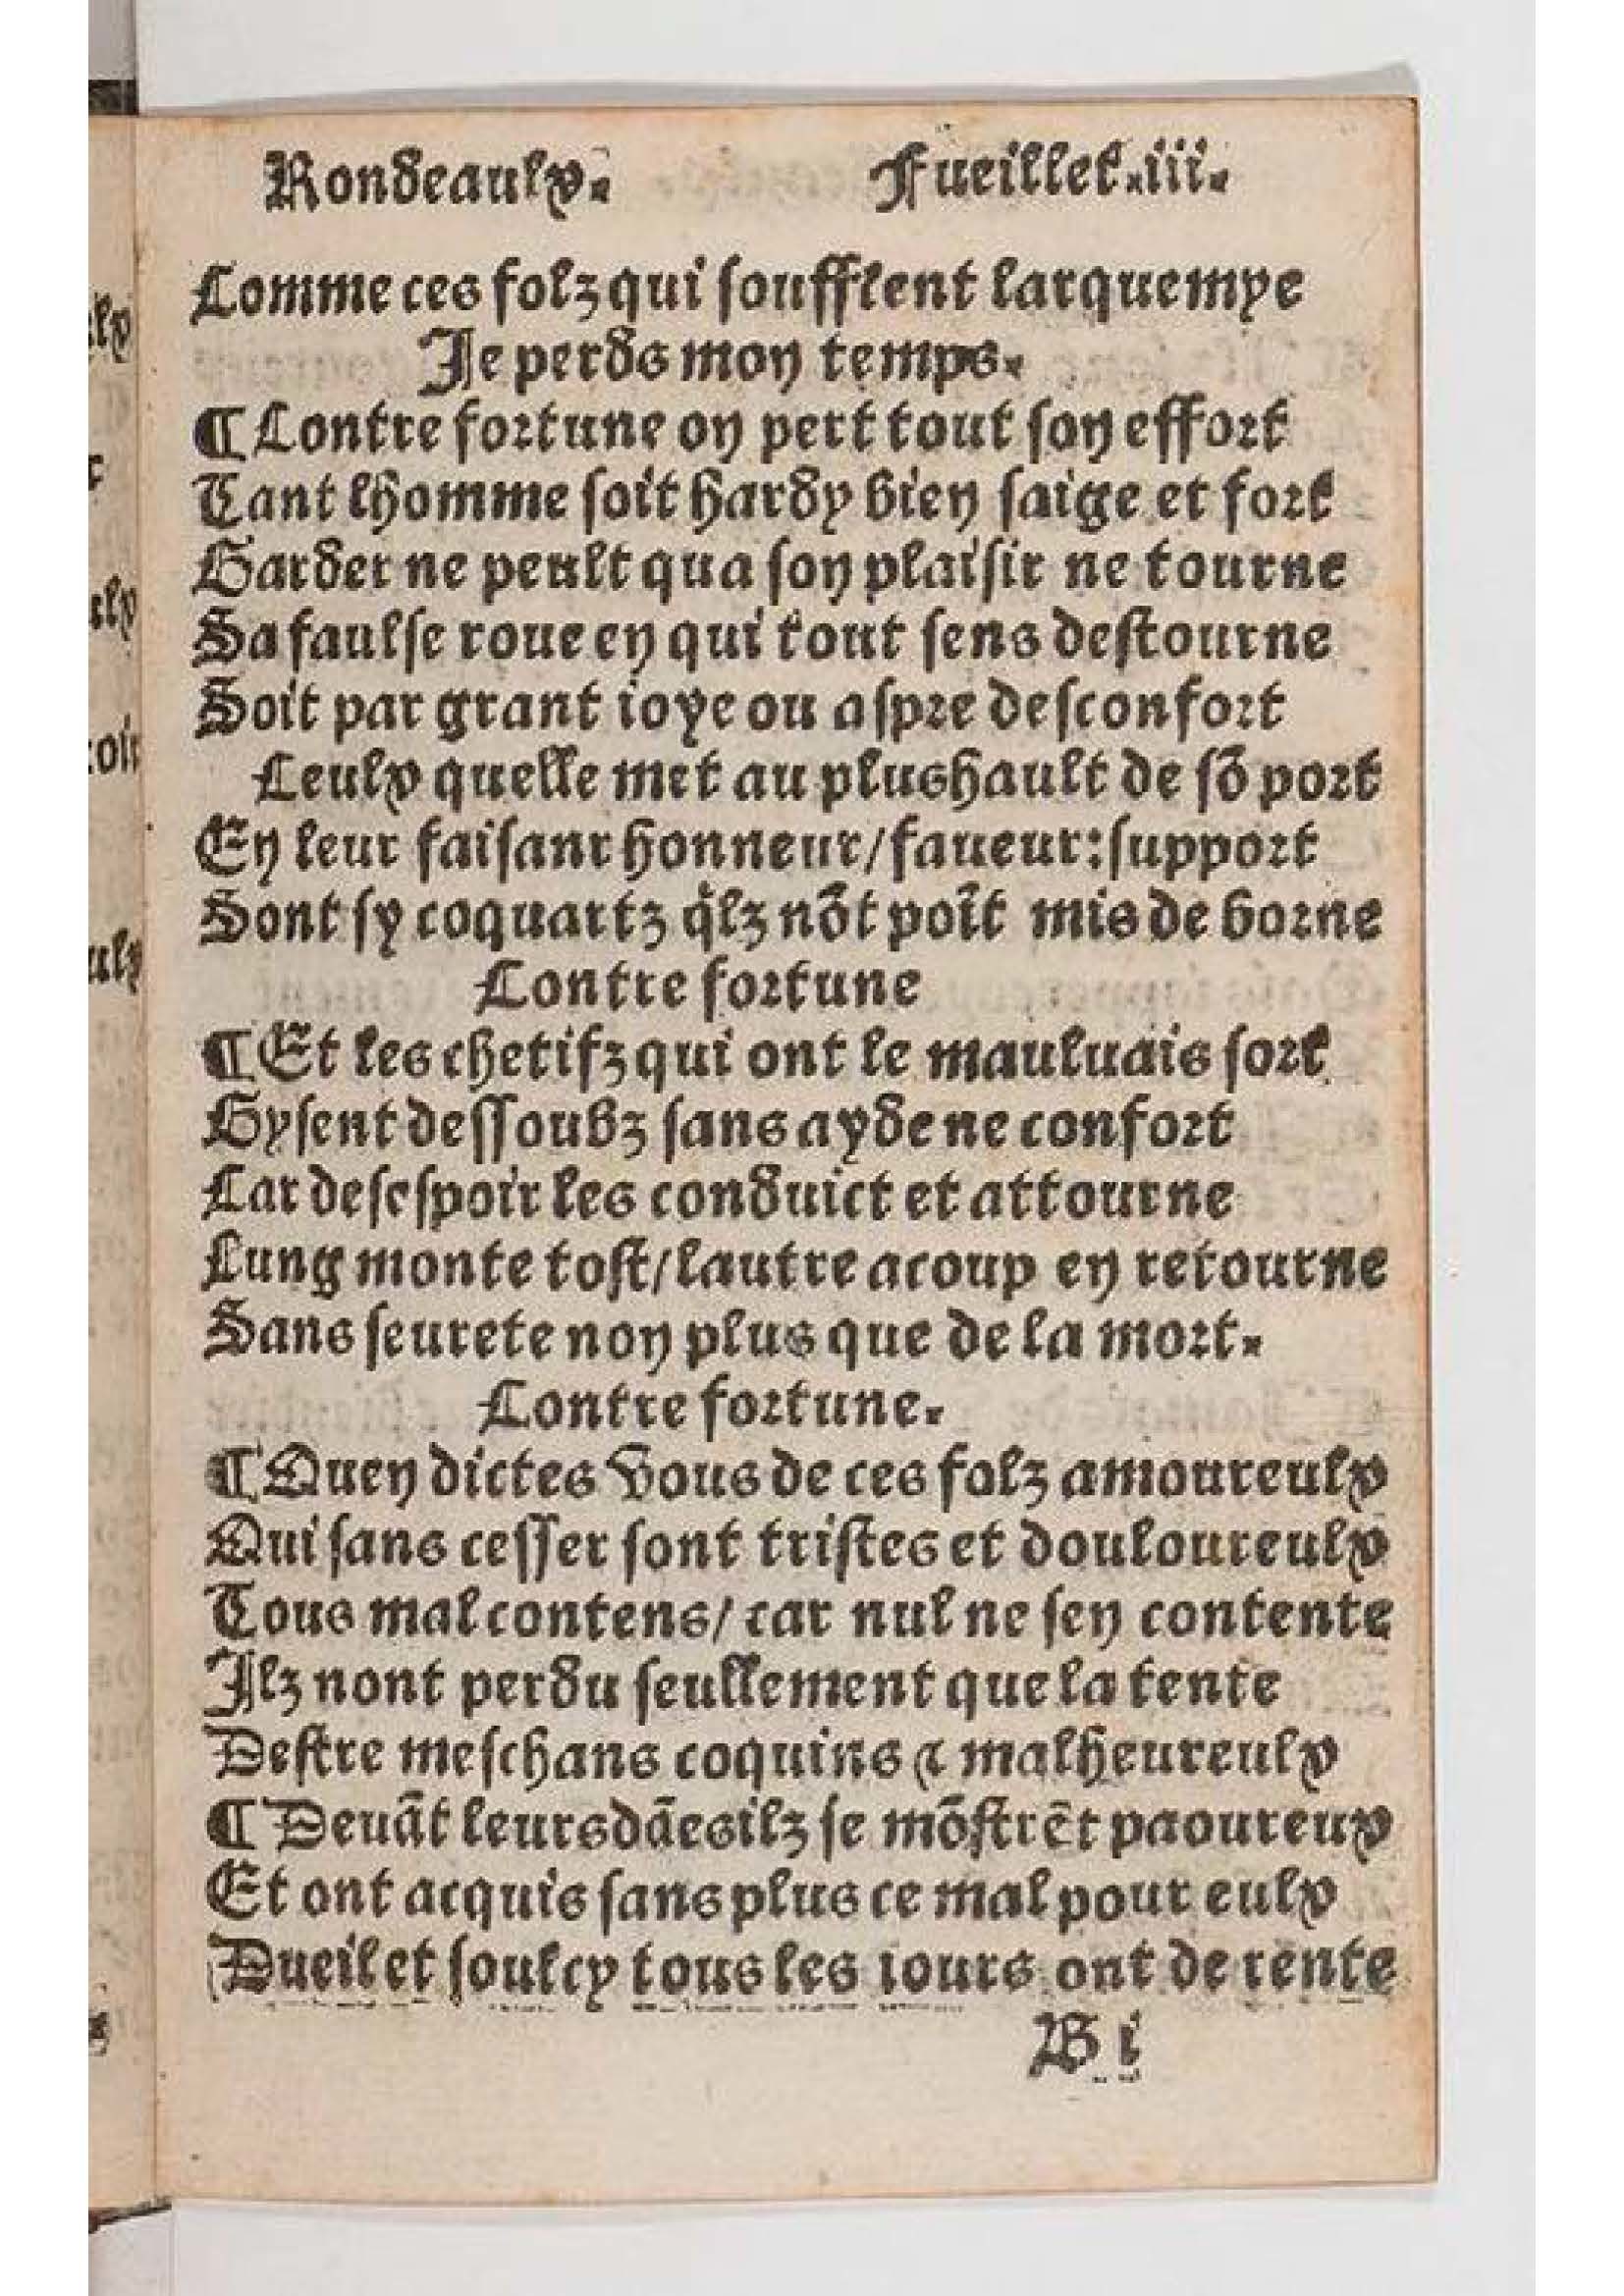 Rondeaulx. Fueillet.iii.
Comme ces folz qui soufflent larquemye
Je perds mon temps.
¶Contre fortune on pert tout son effort
Tant lhomme soit hardy bien saige et fort
Garder ne peult qua son plaisir ne tourne
Sa faulse roue en qui tout sens destourne
Soit par grant ioye ou aspre desconfort
Ceulx quelle met au plushault de sõ port
En leur faisant honneur/faueur:support
Sont sy coquartz q̃lz nõt poĩt mis de borne
Contre fortune
¶Et les chetifz qui ont le mauluais sort
Gysent dessoubz sans ayde ne confort
Car desespoir les conduict et attourne
Lung monte tost/lautre acoup en retourne
Sans seurete non plus que de la mort.
Contre fortune.
¶Quen dictes vous de ces folz amoureulx
Qui sans cesser sont tristes et douloureulx
Tous mal contens/car nul ne sen contente
Jlz nont perdu seullement que la tente
Destre meschans coquins ⁊ malheureulx
¶Deuãt leurs dãesilz se mõstrẽt paoureux
Et ont acquis sans plus ce mal pour eulx
Dueil et soulcy tous les iours ont de rente
B i